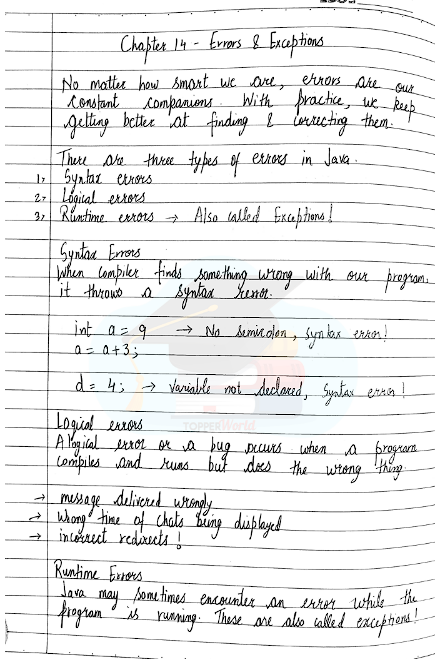 Chapter 14 - Errors & Exceptions
No matter how smart we are, errors are our
constant companions. With practice, we keep
getting better at finding & correcting them.
There are three types of errors in Java.
1> Syntax errors
2> Logical errors
3> Runtime errors → Also called Exceptions!
Syntax Errors
When compiler finds something wrong with our program,
it throws a syntax
int a = 9 → No semicolon, syntax error!
a = a+3;
d = 4; → Variable not declared, syntax error!
TOPPERWorld
Logical errors
A logical error or a bug occurs when a program
compiles and runs but does the wrong thing.
→ message delivered wrongly
→ Wrong time of chats being displayed
→ incorrect redirects!
Runtime Errors
Java may sometimes encounter an error while the
program is running. These are also called exceptions!